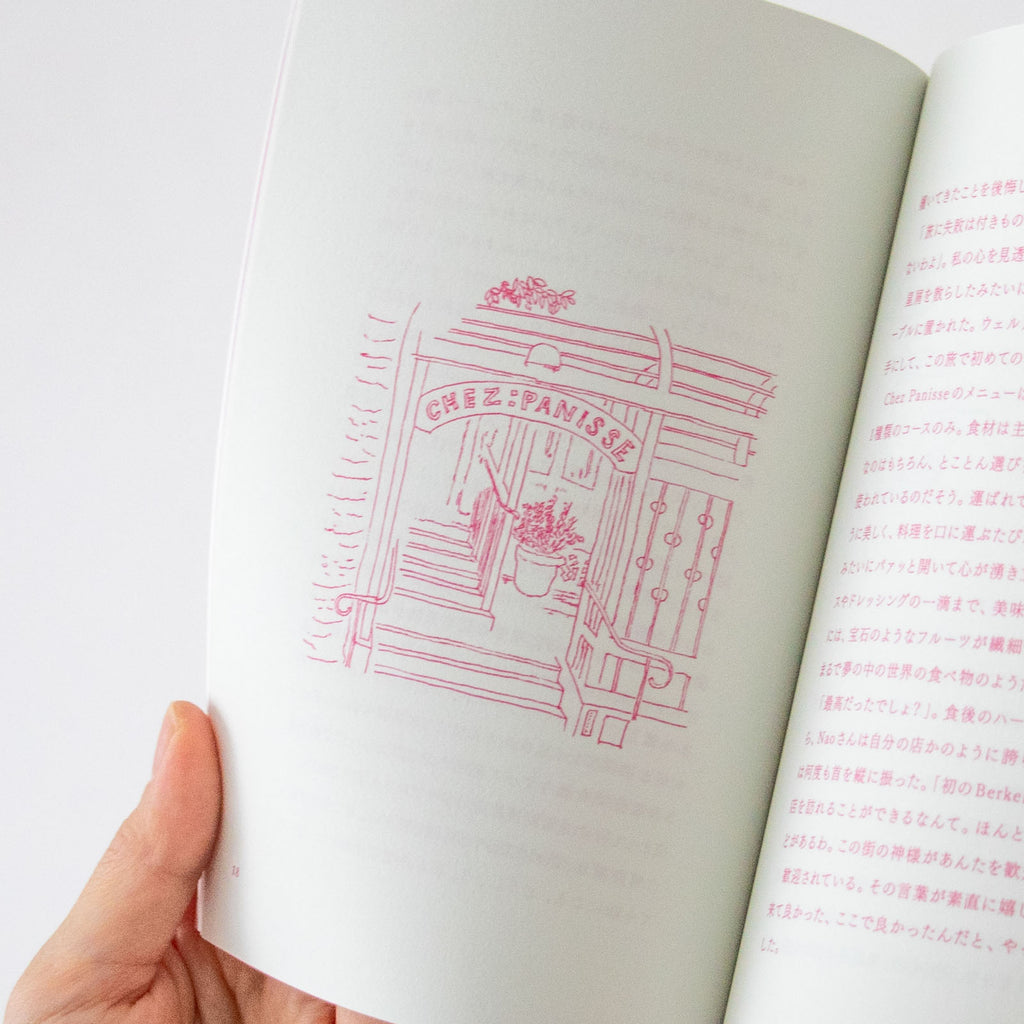 CHEZ:PANISSE
18
履いてきたことを後悔し
「旅に失敗は付きもの
ないわよ」。私の心を見透
星屑を散らしたみたいに
ーブルに置かれた。ウェル
手にして、この旅で初めての
Chez Panisseのメニューは
1種類のコースのみ。食材は主
なのはもちろん、とことん選び
使われているのだそう。運ばれて
うに美しく、料理を口に運ぶたび
みたいにパァッと開いて心が湧き
スやドレッシングの一滴まで、美味
には、宝石のようなフルーツが繊細
まるで夢の中の世界の食べ物のよう
「最高だったでしょ？」。食後のハー
ら、Naoさんは自分の店かのように誇
は何度も首を縦に振った。「初のBerke
店を訪れることができるなんて。ほんと
とがあるわ。この街の神様があんたを歓
歓迎されている。その言葉が素直に嬉し
来て良かった、ここで良かったんだと、や
した。